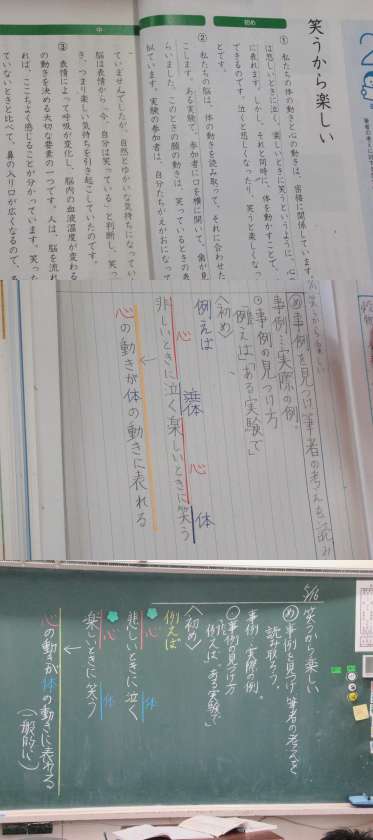 笑うから楽しい
初め
①　私たちの体の動きと心の動きは、密接に関係しています。
は悲しいときに泣く、楽しいときに笑うというように、心
に表れます。しかし、それと同時に、体を動かすことで、
できるのです。泣くと悲しくなったり、笑うと楽しくなっ
とです。
②　私たちの脳は、体の動きを読み取って、それに合わせた
こします。ある実験で、参加者に口を横に開いて、歯が見
らいました。このときの顔の動きは、笑っているときの表
似ています。実験の参加者は、自分たちがえがおになって
中
ていませんでしたが、自然とゆかいな気持ちになってい
脳は表情から「今、自分は笑っている」と判断し、笑っ
き、つまり楽しい気持ちを引き起こしていたのです。
③　表情によって呼吸が変化し、脳内の血液温度が変わる
の動きを決める大切な要素の一つです。人は、脳を流れ
れば、ここちよく感じることが分かっています。笑った
ていないときと比べて、鼻の入り口が広くなるので、
笑うから楽しい
め 事例を見つけ筆者の考えを読み
事例…実際の例。
・事例の見つけ方
「例えば」「ある実験で」
〈初め〉
例えば
心　体　心　体
悲しいときに泣く楽しいときに笑う
←
心の動きが体の動きに表れる
5/16
笑うから楽しい
め 事例を見つけ筆者の考えを
読み取ろう。
事例…実際の例。
・事例の見つけ方
「例えば、ある実験で」
〈初め〉
例えば
心　体
悲しいときに泣く
心　体
楽しいときに笑う
←
心の動きが体の動きに表れる
（一般的に）